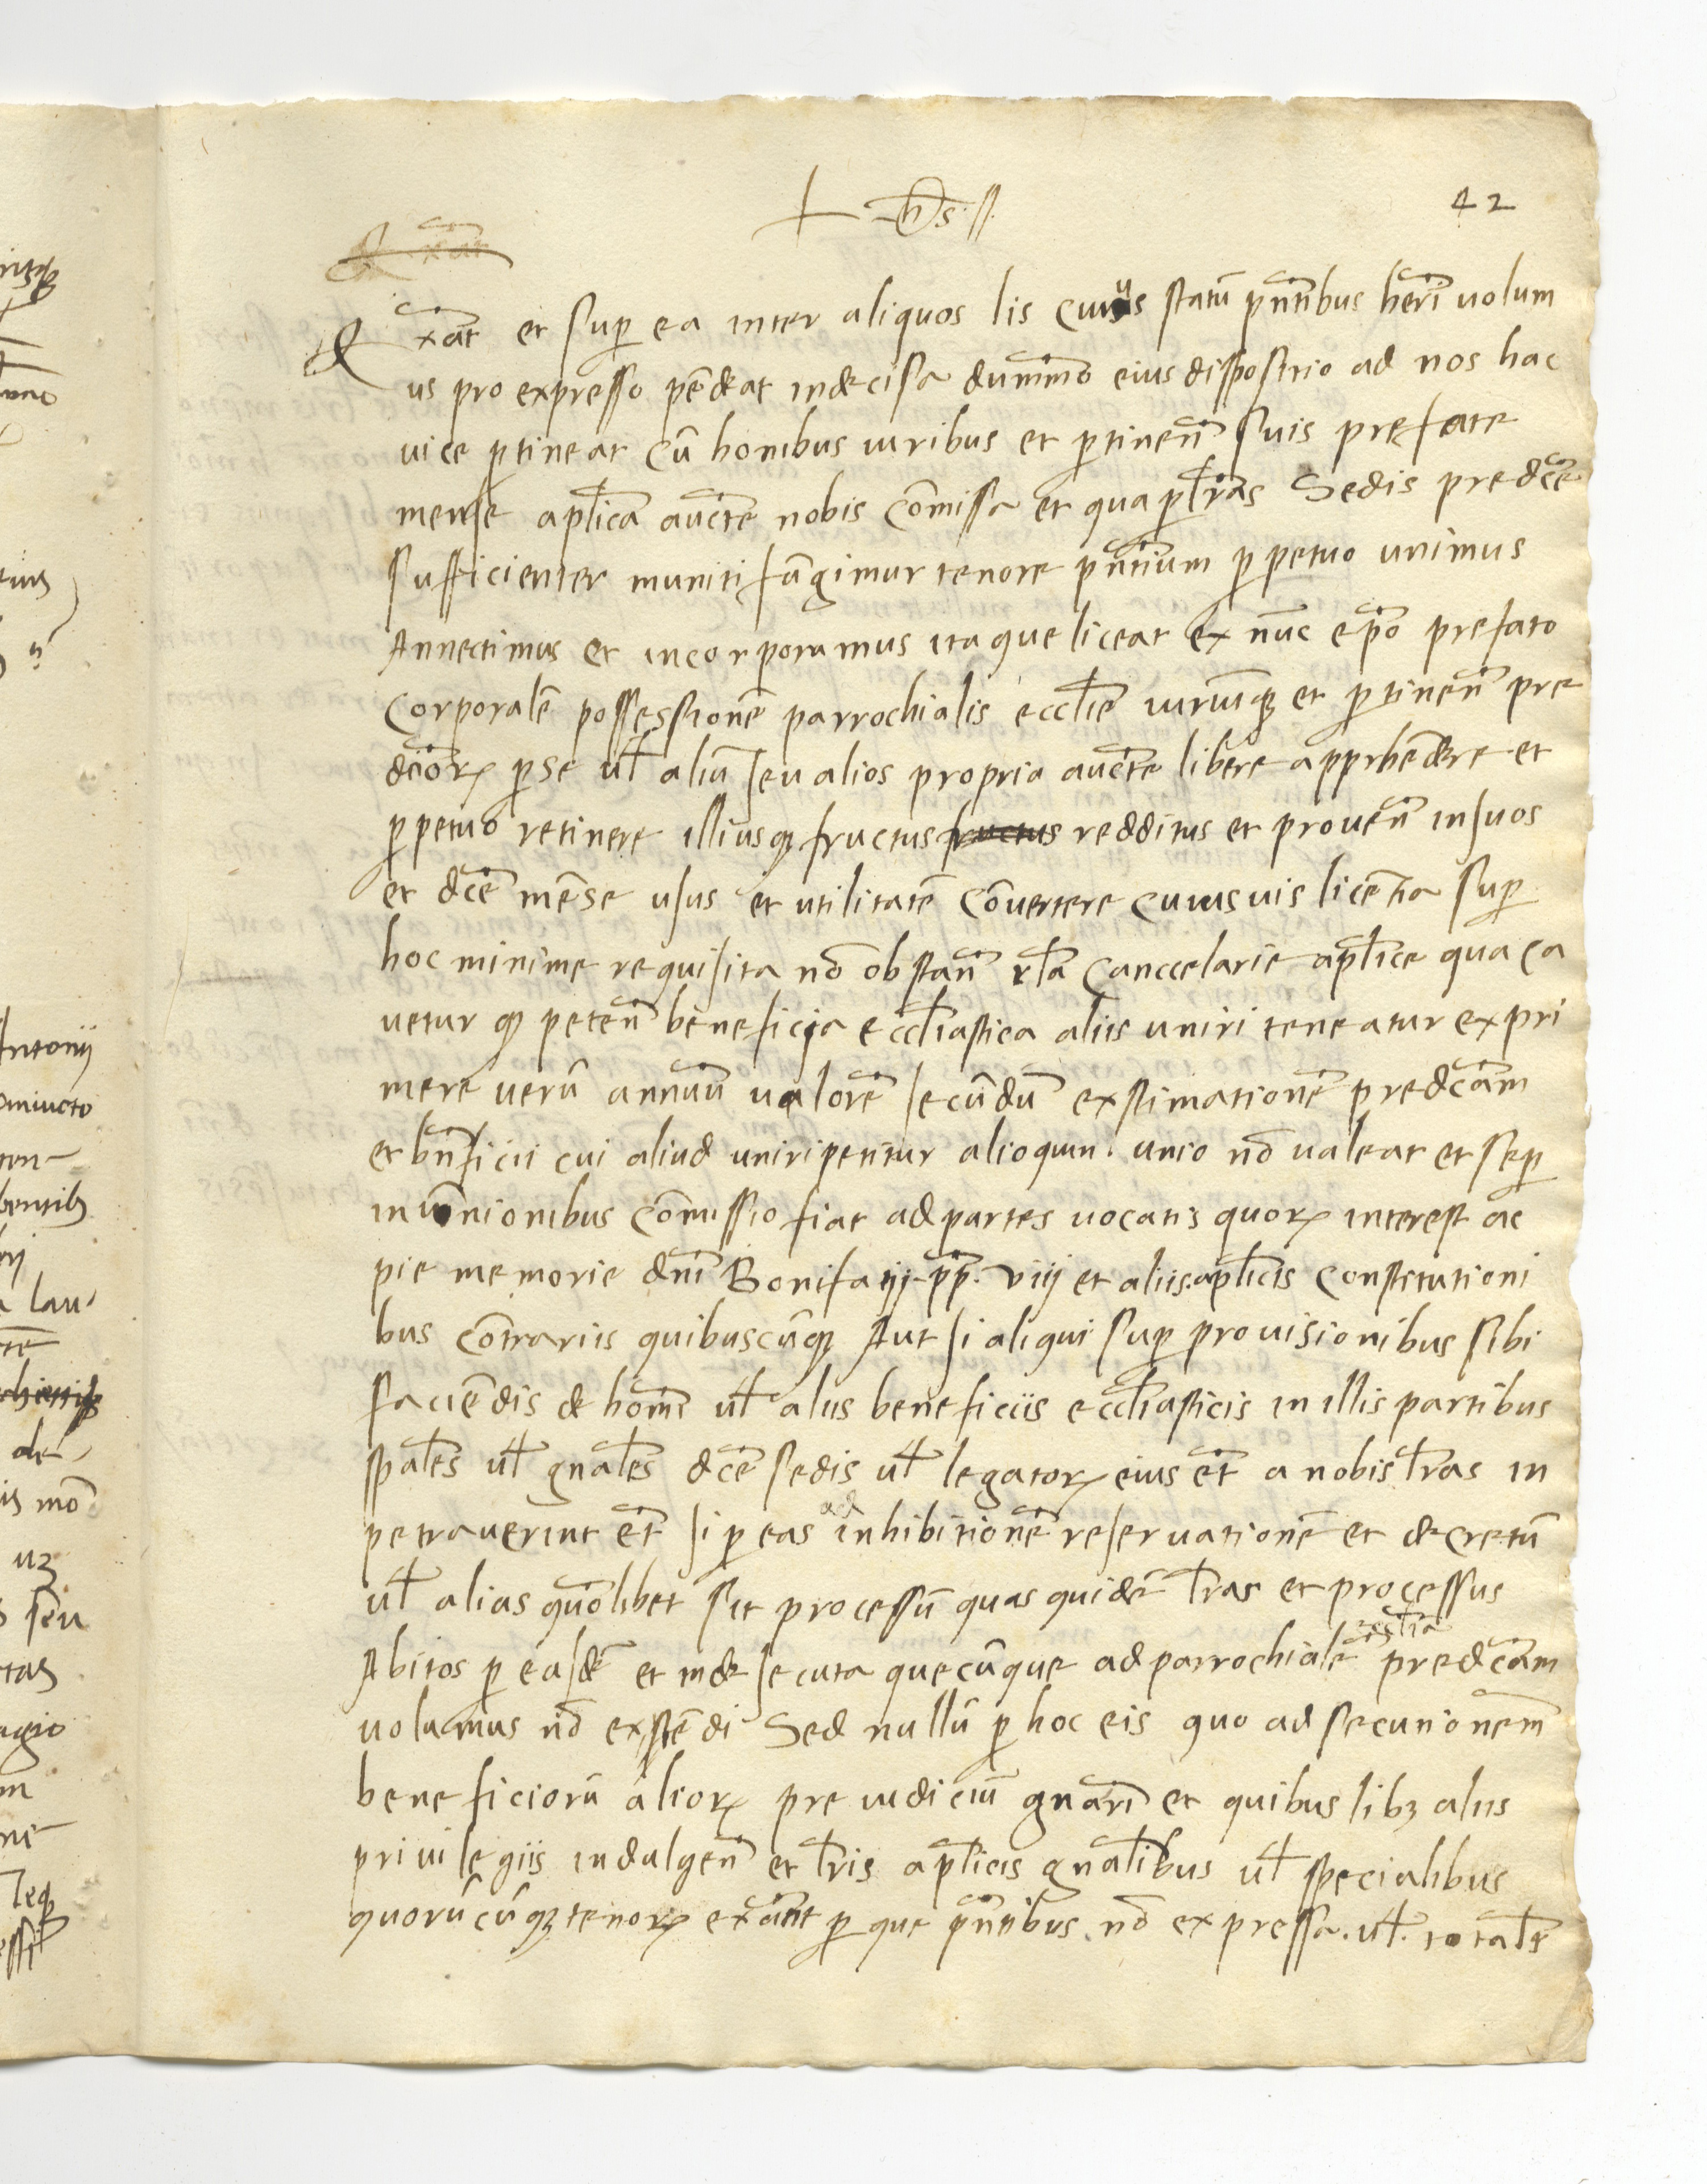 + yhs //. 42
Exa͞t
Exa͞t et sup̱ ea inter aliquos lis cuius statu͞ pn͞tibus heri͞ uolum
us pro expresso pe͞deat indecisa dummo͞ eius dispositio ad nos hac
uice p̱tineat cu͞ honibus iuribus et p̱tinen͞ suis prefate
mense aplica͞ aucte͞ nobis Co͞missa et qua p̱ lr͞as Sedis predce͞
sufficienter muniti fu͞gimur tenore pn͞tium p̱petuo unimus
Annectimus et incorporamus ita que liceat ex nu͞c epo͞ prefato
Corporale͞ possessione͞ parrochialis ecclie͞ iuriu͞q₃ et p̱tinen͞ pre
dcoꝝ͞ p̱ se ul͞ aliu͞ seu alios propria aucte͞ libere apprhe͞dere et
p̱petuo retinere illiusq₃ fructus fructus redditus et prouen͞ in suos
et dce͞ me͞se usus et utilitate͞ Co͞uertere cuiusuis lice͞tia sup̱
hoc minime requisita no͞ obstan͞ rl͞a Canccelarie aplice͞ qua ca
uetur q₃ peten͞ beneficia eccliastica͞ aliis uniri teneatur expri
mere ueru͞ annuu͞ ualore͞ secu͞du͞ exstimatione͞ predcam͞
et bn͞ficii cui aliud uniri petitur alioquin. unio no͞ ualeat et sep̱
in unionibus Co͞missio fiat ad partes uocatis quoꝝ interest ac
pie memorie dn͞i Bonifatij. pp͞. viij et aliis. aplicis͞ Constitutioni
bus co͞trariis quibuscu͞q₃ Aut si aliqui sup̱ prouisionibus sibi
facie͞dis de homi͞ ul͞ aliis beneficiis eccliasticis͞ in illis partibus
spales͞ ul͞ gnales͞ dce͞ sedis ul͞ legatoꝝ eius et͞ a nobis lr͞as in
petrauerint et͞ si p̱ eas ad inhibitione͞ reseruatione͞ et decretu͞
ul͞ alias quo͞libet sit processu͞ quas quide͞ lr͞as et processus
Abitos p̱ easde͞ et inde secuta quecu͞que ad parrochiale͞ eccl͞ia͞ predcam͞
uolumus no͞ exste͞di Sed nullu͞ p̱ hoc eis quo ad secutionem͞
beneficioru͞ alioꝝ preiudiciu͞ gnari͞ et quibus lib₃ aliis
priuilegiis indulgen͞ et lr͞is aplicis͞ gnalibus͞ ul͞ specialibus
quoru͞cu͞q₃ tenoꝝ exa͞nt p̱ que pn͞tibus. no͞ expressa. ul͞. totalr͞